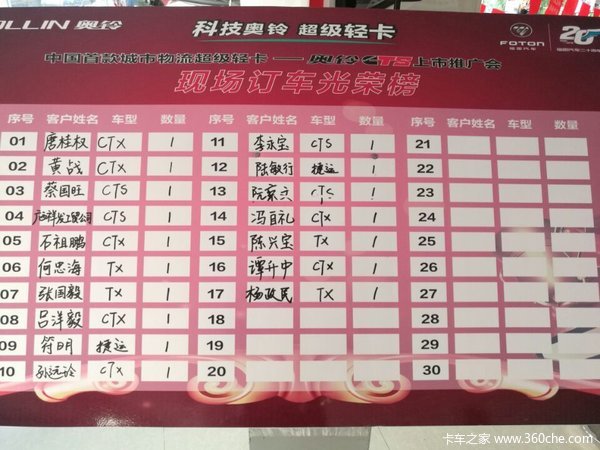 OLLIN 奥铃
科技奥铃 超级轻卡
FOTON
福田汽车
20
福田汽车二十周年
中国首款城市物流超级轻卡——奥铃CTS上市推广会
现场订车光荣榜
序号 客户姓名 车型 数量 序号 客户姓名 车型 数量 序号 客户姓名 车型 数量
01 唐桂权 CTX 1 11 李永宝 CTS 1 21
02 黄战 CTX 1 12 陈敏行 捷运 1 22
03 蔡国旺 CTS 1 13 CTS 1 23
04 CTS 1 14 冯自礼 CTX 1 24
05 石祖鹏 CTX 1 15 陈兴宝 TX 1 25
06 何忠海 TX 1 16 谭升中 CTX 1 26
07 张国毅 TX 1 17 杨政民 TX 1 27
08 吕洋毅 CTX 1 18 28
09 符明 捷运 1 19 29
10 CTX 1 20 30
卡车之家 www.360che.com